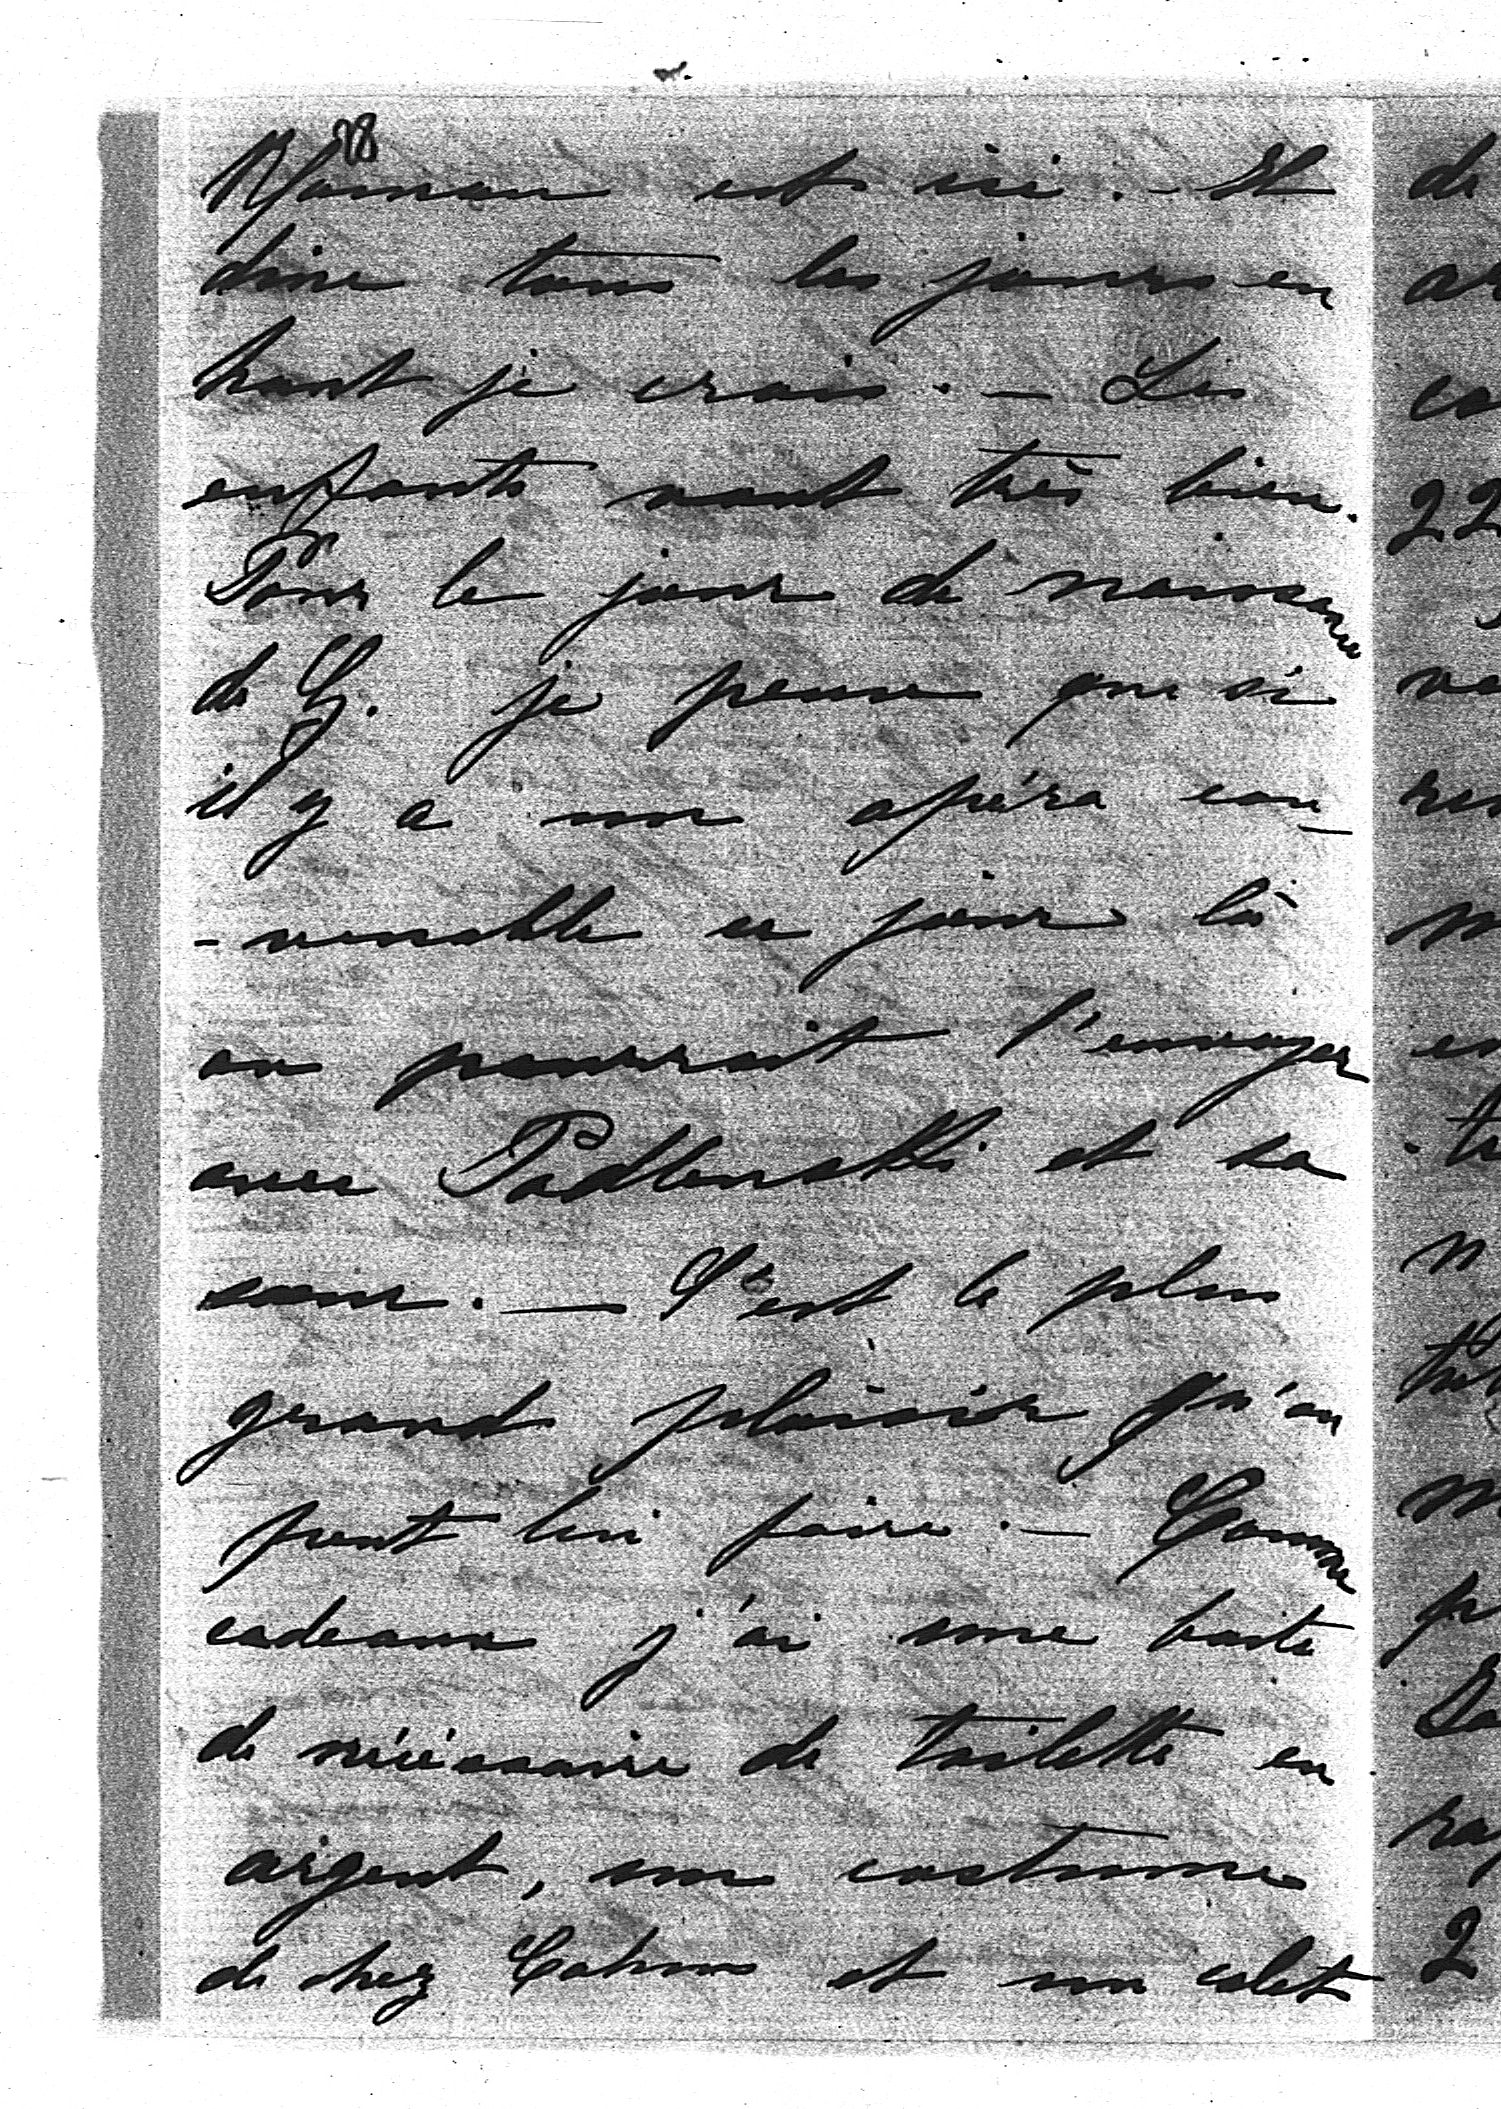 28
Maman est ici. - Et
dine tous les jours en
haut je crois. - Les
enfants vont très bien.
Pour le jour de naissance
de G. je pense que si
il y a un opéra con-
-venable ce jour là
on pourrait l'envoyer
avec Podlenski et sa
soeur. — C'est le plus
grand plaisir qu'on
peut lui faire. - Comme
cadeaux j'ai une boite
de nécéssaire de toilette en
argent, un costume
de chez et un colet